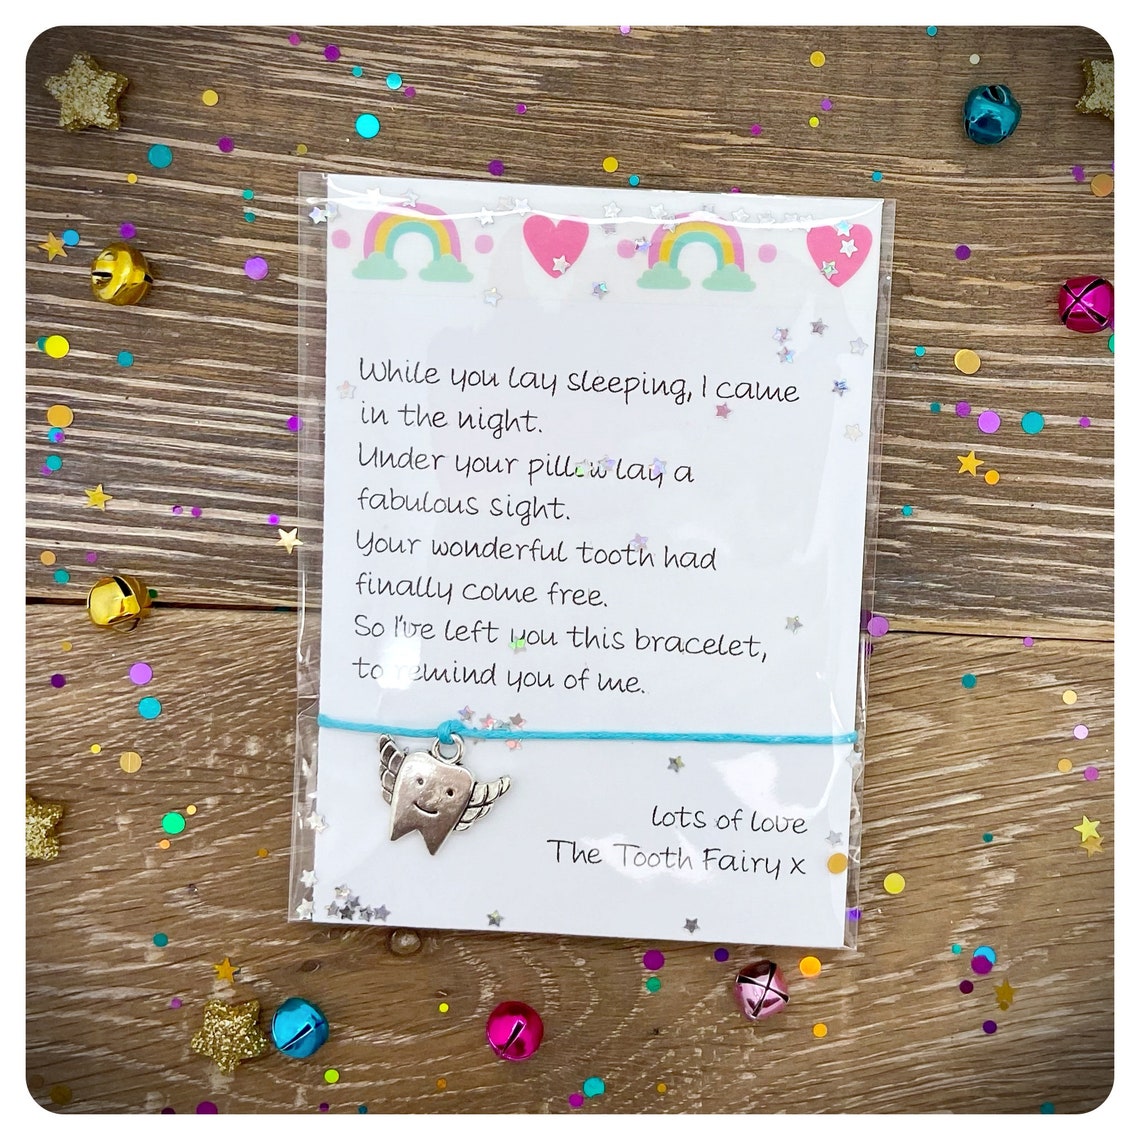 While you lay sleeping, I came
in the night.
Under your pillow lay a
fabulous sight.
Your wonderful tooth had
finally come free.
So I've left you this bracelet,
to remind you of me.
lots of love
The Tooth Fairy x